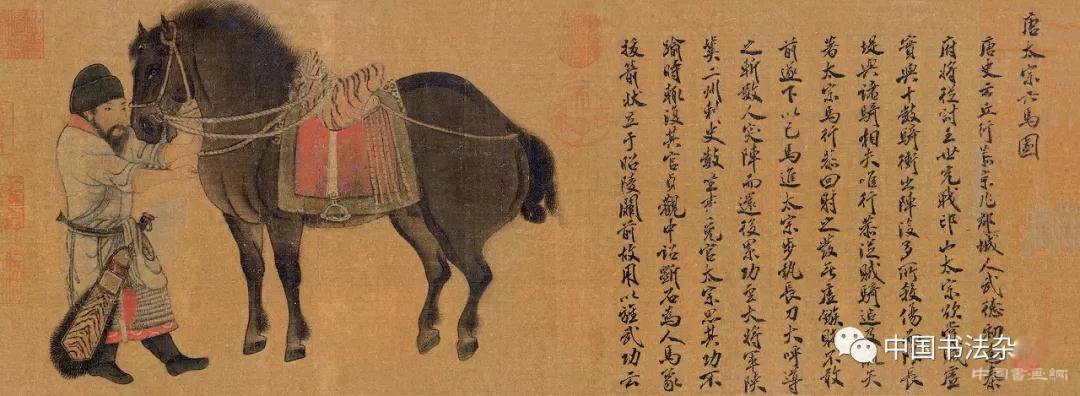 唐太宗六馬圖
唐史云丘行恭京兆郿城人武德初秦
府將從討王世充戰邙山太宗欲嘗賊虛
實與十數騎衝出陣後多所殺傷限長
堤與諸騎相失唯行恭從賊騎追及流矢
著太宗馬行恭回射之發無虛鏃賊不敢
前遂下以己馬進太宗步執長刀大呼導
之斬數人突陣而還後累功至大將軍陝
冀二州刺史數坐事免官太宗思其功不
踰時輒復其官貞觀中詔斲石為人馬象
拔箭狀立于昭陵闕前故用以旌武功云
中国书法杂
中国書画網